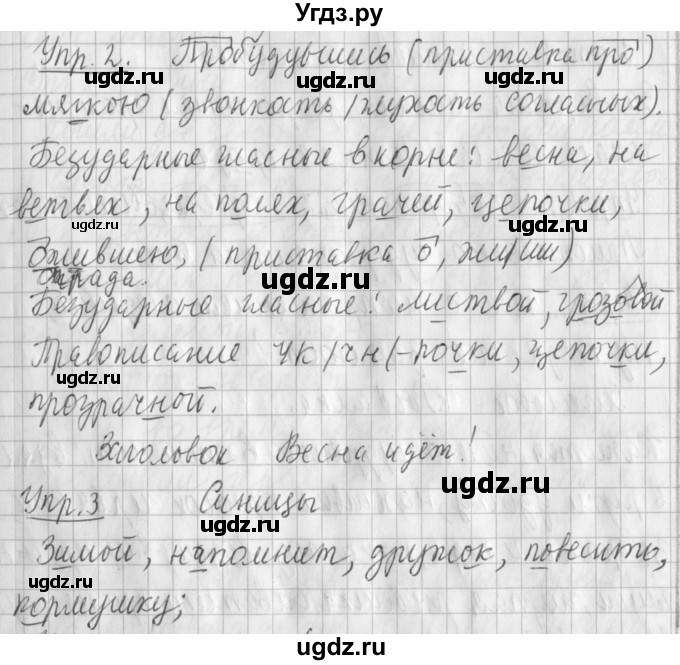 Угдз.ру
Упр. 2. Пробудувшись (приставка про)
мягкою (звонкость/глухость согласных).
Безударные гласные в корне: весна, на
ветвях, на полях, грачей, цепочки,
ожившею, (приставка о, жи/ши)
отрада.
Безударные гласные: листвой, грозовой
Правописание чк/чн (-рочки, цепочки,
прозрачной.
Заголовок Весна идёт!
Упр. 3 Синицы
Зимой, напомнит, дружок, повесить,
кормушку;
ugdz.ru
ugdz.ru
ugdz.ru
ugdz.ru
ugdz.ru
ugdz.ru
ugdz.ru
ugdz.ru
ugdz.ru
ugdz.ru
ugdz.ru
ugdz.ru